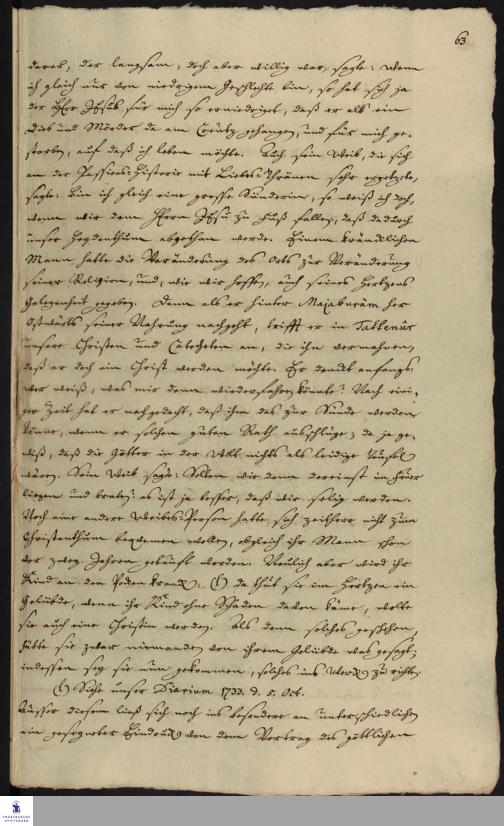 63
derer, der langsam, doch aber willig war, sagte: Wenn
ich gleich aus den niedrigem Geschlechte bin, so hat sich ja
der HErr JEsus für mich so erniedriget, daß er als ein
Dieb und Mörder da am Creutz gehangen, und für mich ge-
storben, auf daß ich leben möchte. Auch sein Weib, die sich
an der Passions-Historie mit Liebes-Thränen sehr ergetzete,
sagte: bin ich gleich eine grosse Sünderin, so weiß ich doch,
wenn wir dem HErrn JEsu zu Fuß fallen, daß dadurch
unser Heydenthum abgethan werde. Einem kräncklichen
Mann hatte die Veränderung des Orts zur Veränderung
seiner Religion, und, wie wir hoffen, auch seines Hertzens
Gelegenheit gegeben. Denn als er hinter Majaburam her
Ostwärts seiner Nahrung nachgeht, trifft er in Tattenur
unsere Christen und Catecheten an, die ihn vermahnen,
daß er doch ein Christ werden möchte. Er denckt anfangs:
wer weiß, was mir denn wiederfahren könnte? Nach eini-
ger Zeit hat er nachgedacht, daß ihm das zur Sünde werden
könne, wenn er solchen guten Rath ausschlüge; da ja ge-
wiß, daß die Götter in der Welt nichts als leidige Teufel
wären. Sein Weib sagte: Sollen wir denn dereinst im Feuer
liegen und braten? es ist ja besser, daß wir selig werden.
Noch eine andere Weibes-Person hatte sich zeithero nicht zum
Christenthum beqvemen wollen, obgleich ihr Mann schon
vor zwey Jahren getauft worden. Neulich aber wird ihr
Kind an den Poken kranck. (†) da thut sie im Hertzen ein
Gelübde, wenn ihr Kind ohne Schaden davon käme, wolte
sie auch eine Christin werden. Als denn solches geschehen,
hätte sie zwar niemanden von ihrem Gelübde was gesagt;
indessen sey sie nun gekommen, solches ins Werck zu richten.
(†) Siehe unser Diarium 1733. d. 5. Oct.
Ausser diesem ließ sich noch ins besondere an unterschiedlichen
ein gesegneter Eindruck von dem Vortrag des göttlichen
FRANCKESCHE
STIFTUNGEN